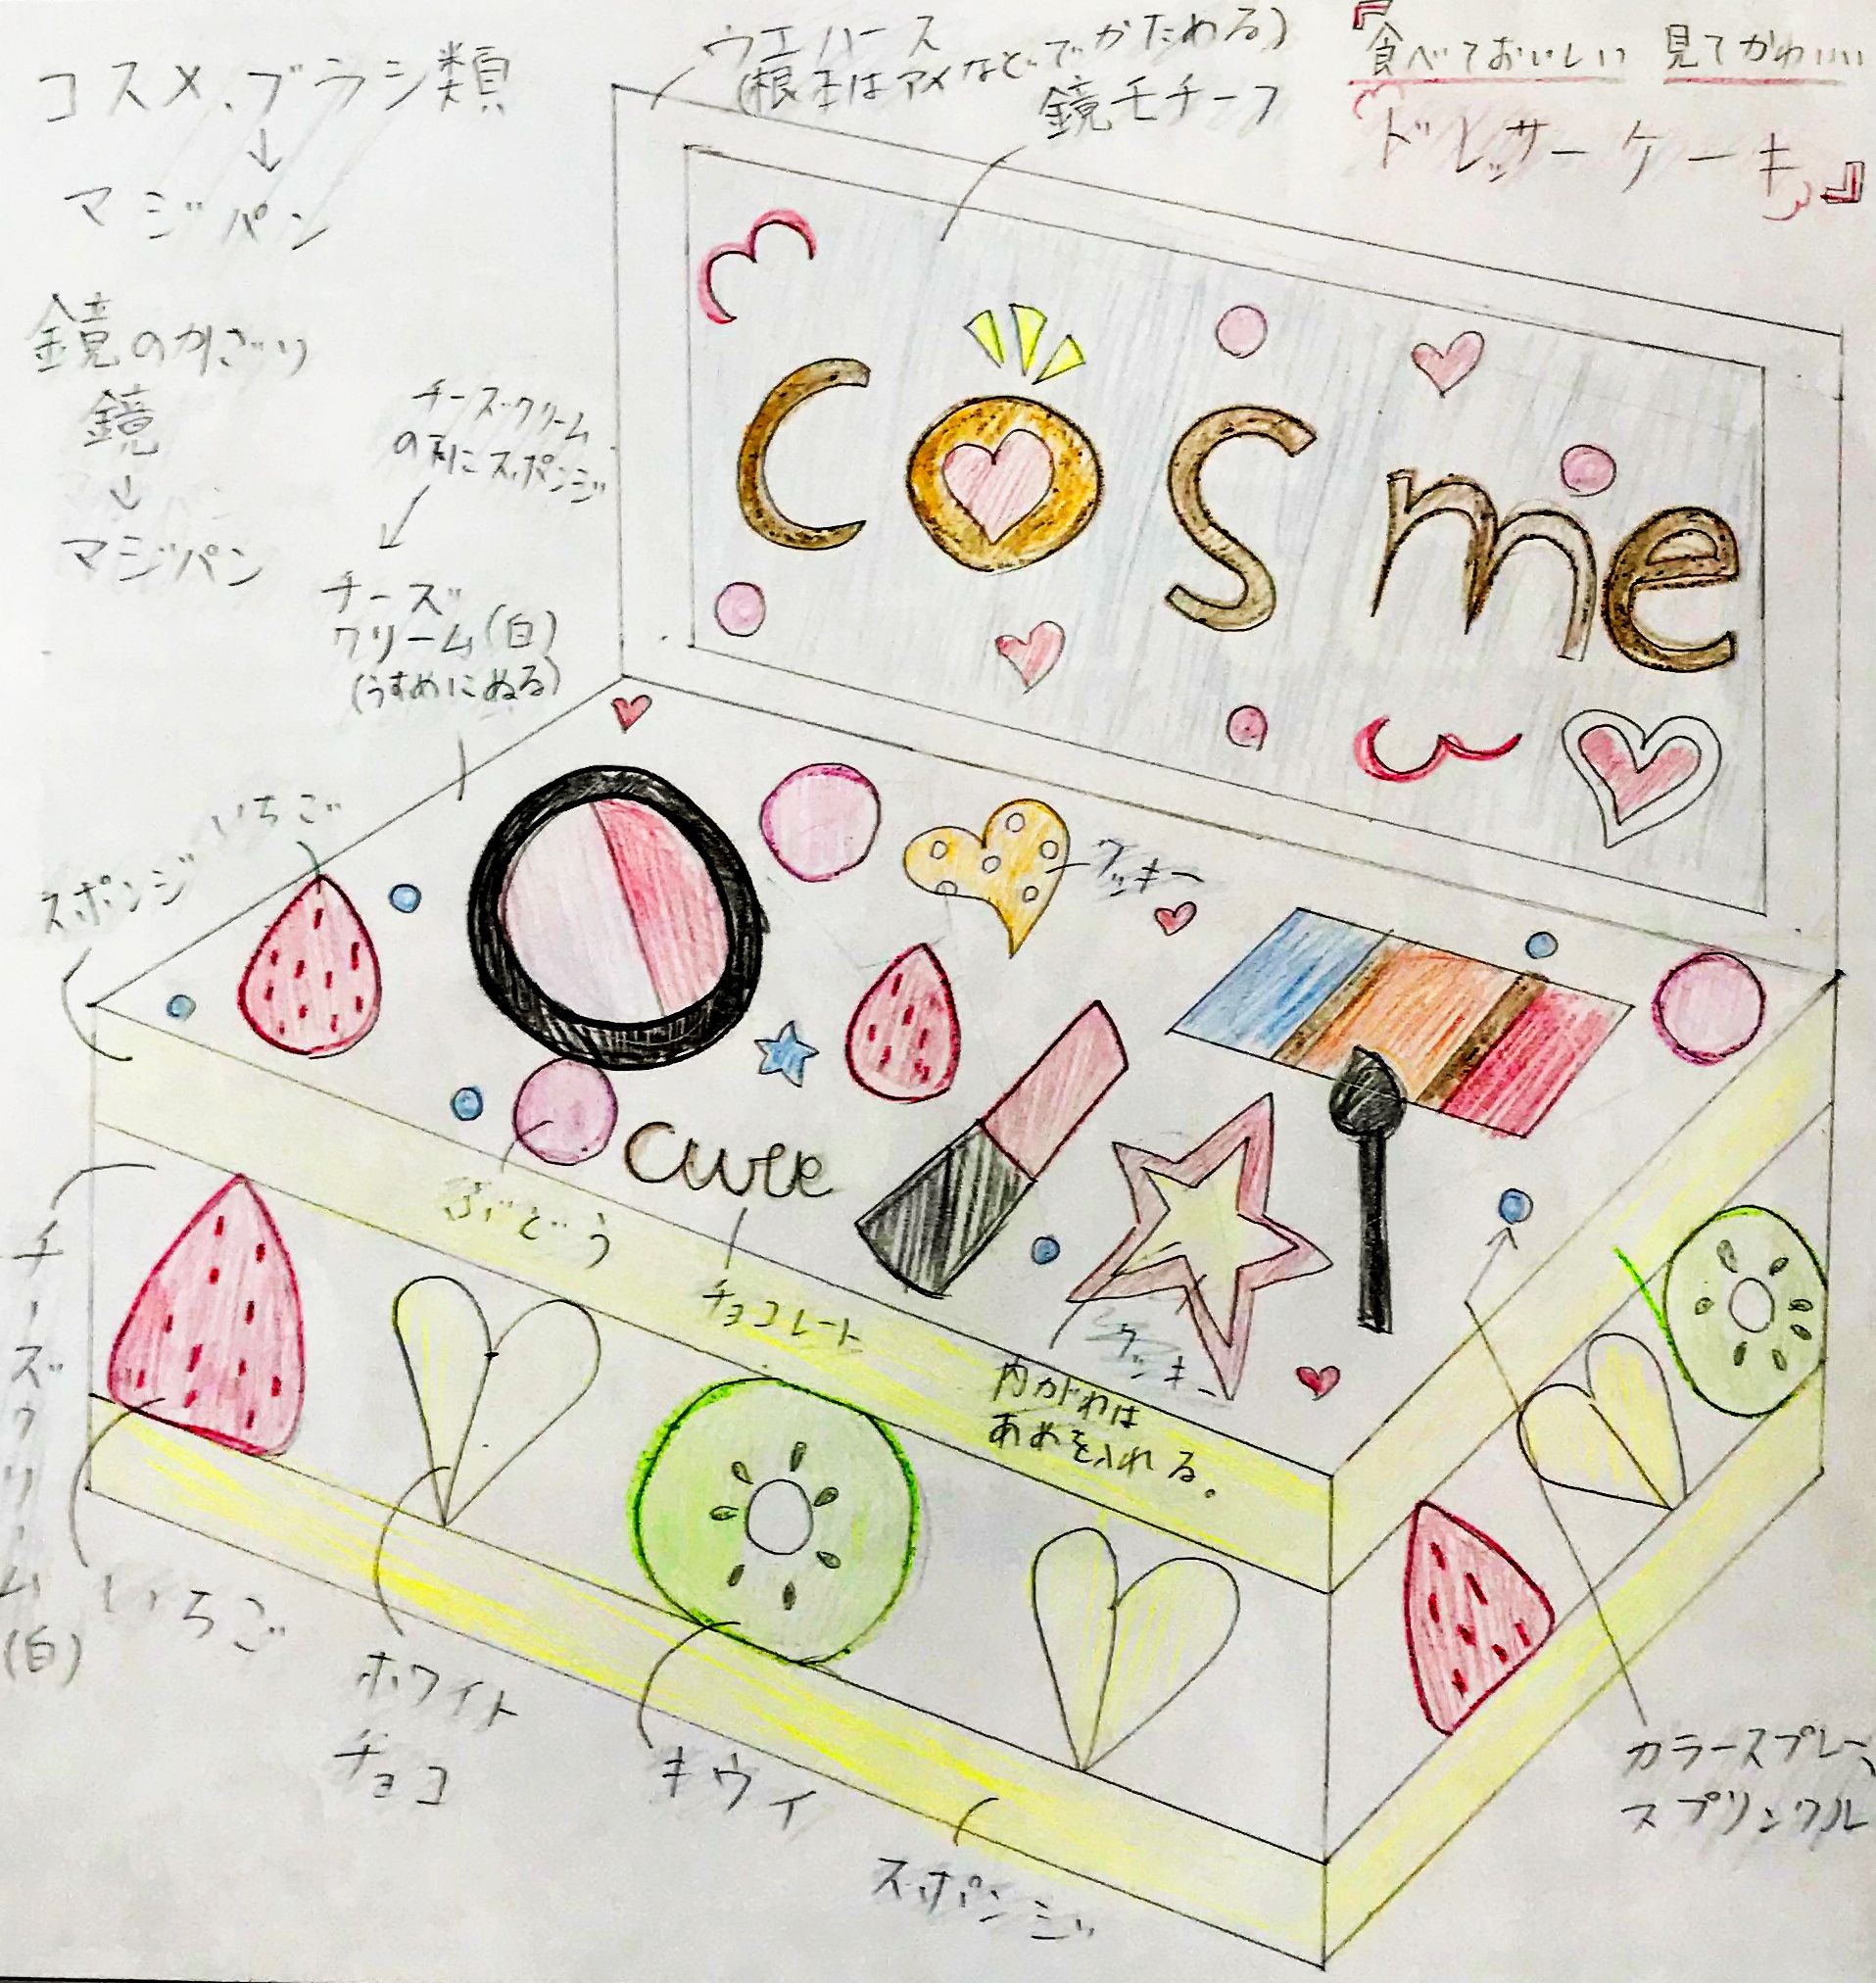 コスメ、ブラシ類
↓
マジパン
鏡のかざり
鏡
↓
マジパン
ウエハース
(根本はアメなどでかためる)
鏡モチーフ
『食べておいしい 見てかわいい
ドレッサーケーキ』
cosme
チーズクリーム
の下にスポンジ
チーズ
クリーム(白)
(うすめにぬる)
いちご
スポンジ
クッキー
cute
ぶどう
チョコレート
クッキー
内がわは
あめを入れる。
チーズクリーム
(白)
いちご
ホワイト
チョコ
キウイ
スポンジ
カラースプレー、
スプリンクル